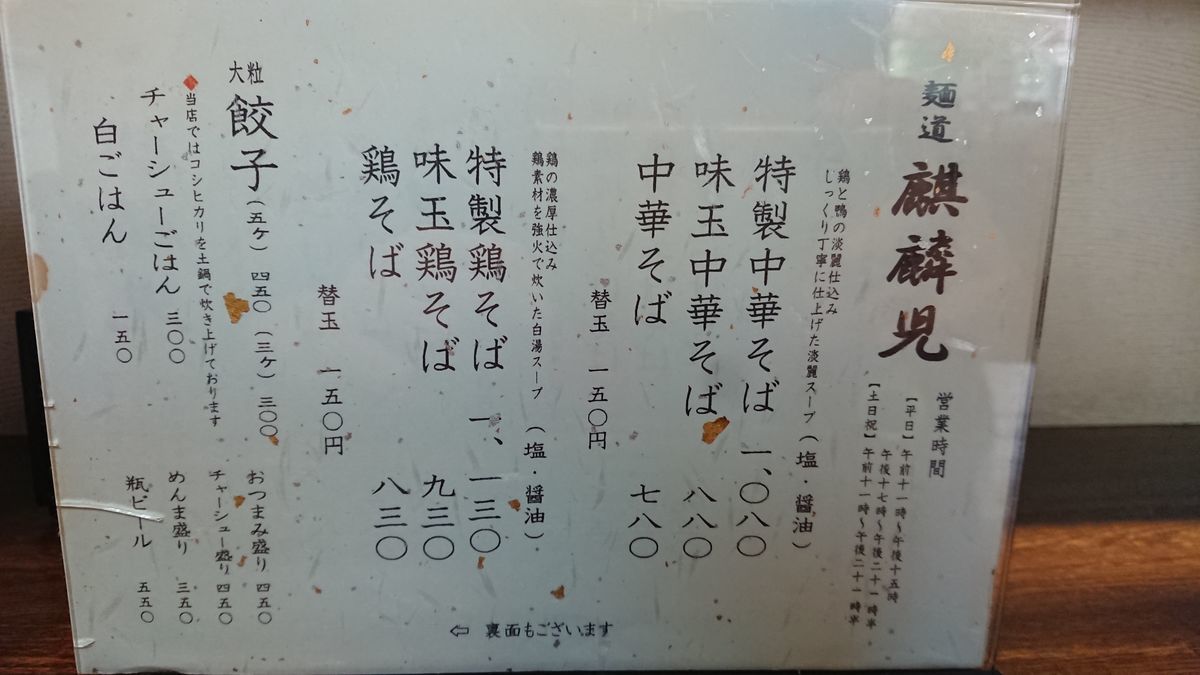 麺道 麒麟児
営業時間
【平日】午前十一時～午後十五時
午後十七時～午後二十一時半
【土日祝】午前十一時～午後二十一時半
鶏と鴨の淡麗仕込み
しっくり丁寧に仕上げた淡麗スープ(塩・醤油)
特製中華そば 一、〇八〇
味玉中華そば 八八〇
中華そば 七八〇
替玉 一五〇円
鶏の濃厚仕込み
鶏素材を強火で炊いた白湯スープ(塩・醤油)
特製鶏そば 一、一三〇
味玉鶏そば 九三〇
鶏そば 八三〇
替玉 一五〇円
大粒 餃子(五ケ) 四五〇 (三ケ) 三〇〇
◆当店ではコシヒカリを土鍋で炊き上げております
チャーシューごはん 三〇〇
白ごはん 一五〇
おつまみ盛り 四五〇
チャーシュー盛り 四五〇
めんま盛り 三五〇
瓶ビール 五五〇
⇦ 裏面もございます